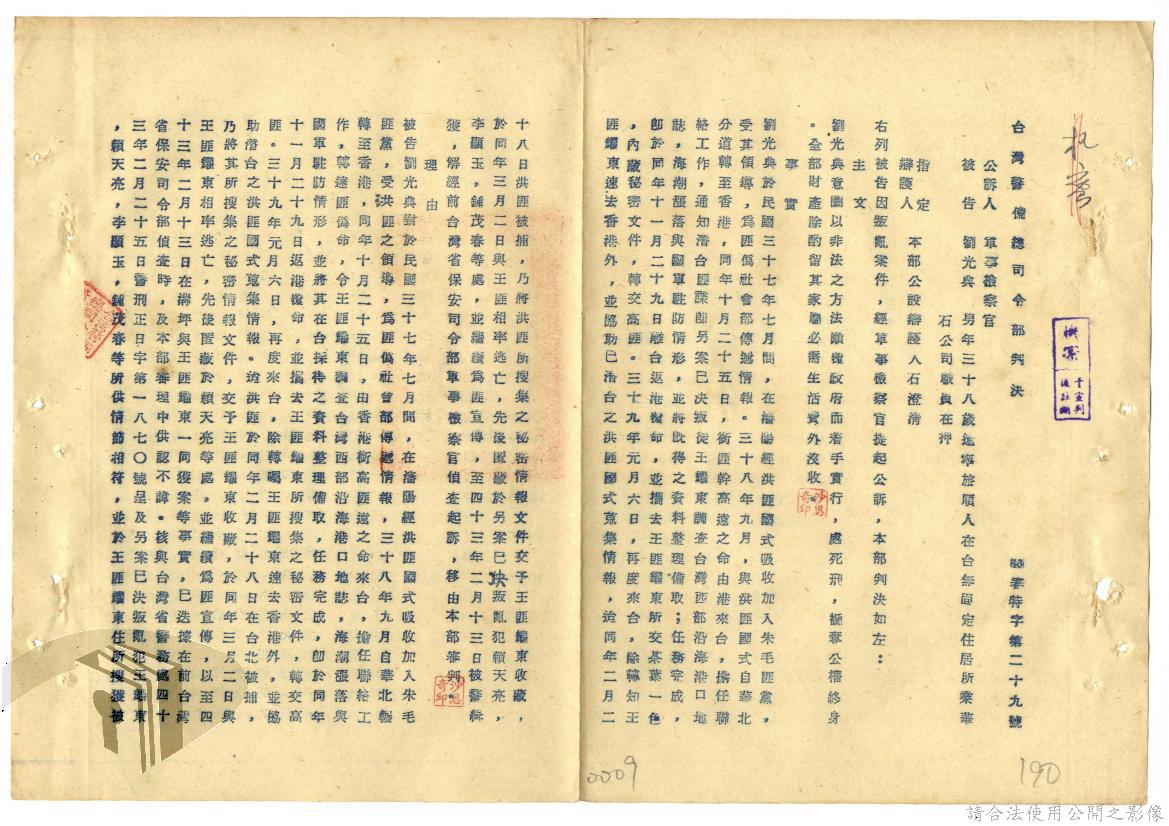 台灣警備總司令部判決
審特字第二十九號
公訴人 軍事檢察官
被告 劉光典 男年三十八歲遼寧旅順人在台無固定住居所業華
石公司職員在押
指定
辯護人 本部公設辯護人石澄清
右列被告因叛亂案件,經軍事檢察官提起公訴,本部判決如左:
主文
劉光典意圖以非法之方法顛覆政府而着手實行,處死刑,褫奪公權終身
。全部財產除酌留其家屬必需生活費外沒收。
事實
劉光典於民國三十七年七月間,在瀋陽經洪匪國式吸收加入朱毛匪黨,
受其領導,為匪偽社會部傳遞情報。三十八年九月,與洪匪國式自華北
分道轉至香港,同年十月二十五日,銜匪幹高遠之命由港來台,擔任聯
絡工作,通知潛台匪諜即另案已決叛徒王耀東調查台灣西部沿海港口地
誌,海潮漲落與國軍駐防情形,並將既得之資料整理備取;任務完成,
即於同年十一月二十九日離台返港復命,並攜去王匪耀東所交茶葉一包
,內藏秘密文件,轉交高匪。三十九年元月六日,再度來台,除轉知王
匪耀東速去香港外,並協助已潛台之洪匪國式蒐集情報,迨同年二月二
十八日洪匪被捕,乃將洪匪所搜集之秘密情報文件交予王匪耀東收藏,
於同年三月二日與王匪相率逃亡,先後匿藏於另案已決叛亂犯賴天亮,
李顯玉,鍾茂春等處,並繼續為匪宣傳,至四十三年二月十三日被警緝
獲,解經前台灣省保安司令部軍事檢察官偵查起訴,移由本部審判。
理由
被告劉光典對於民國三十七年七月間,在瀋陽經洪匪國式吸收加入朱毛
匪黨,受洪匪之領導,為匪偽社會部傳遞情報,三十八年九月自華北輾
轉至香港,同年十月二十五日,由香港銜高匪遠之命來台,擔任聯絡工
作,轉達匪偽命,令王匪耀東調查台灣西部沿海港口地誌,海潮漲落與
國軍駐防情形,並將其在台採得之資料整理備取,任務完成,即於同年
十一月二十九日返港復命,並攜去王匪耀東所搜集之秘密文件,轉交高
匪。三十九年元月六日,再度來台,除轉囑王匪耀東速去香港外,並協
助潛台之洪匪國式蒐集情報。迨洪匪於同年二月二十八日在台北被捕,
乃將其所搜集之秘密情報文件,交予王匪耀東收藏,於同年三月二日與
王匪耀東相率逃亡,先後匿藏於賴天亮等處,並繼續為匪宣傳,以至四
十三年二月十三日在濟坪與王匪耀東一同獲案等事實,已迭據在前台灣
省保安司令部偵查時,及本部審理中供認不諱。核與台灣省警務處四十
三年二月二十五日警刑正日字第一八七〇號呈及另案已決叛亂犯王耀東
,賴天亮,李顯玉,鍾茂春等所供情節相符,並於王匪耀東住所搜獲被
0009
190
請合法使用公開之影像